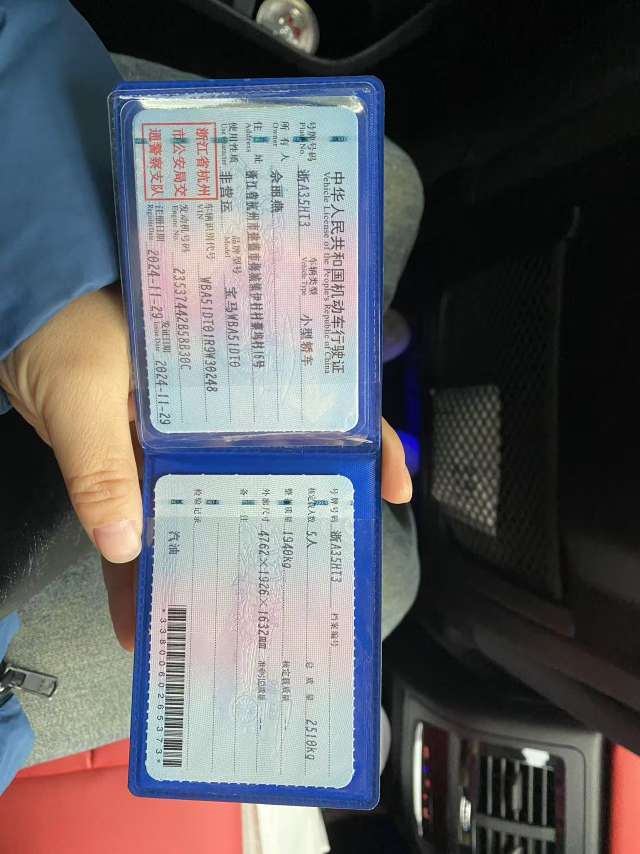 中华人民共和国机动车行驶证
Vehicle License of the People's Republic of China
号牌号码 浙A35HT3 车辆类型 小型轿车
Plate No. Vehicle Type
所有人 余丽燕
Owner
住址 浙江省杭州市建德市梅城镇伊村村
Address
使用性质 非营运 品牌型号 宝马WBA51DT0
Use Character Model
浙江省杭州
市公安局交
通警察支队
车辆识别代号 WBA51DT01R9W30248
VIN
发动机号码 23537442B58B30C
Engine No.
注册日期 2024-11-29 发证日期 2024-11-29
Register Date Issue Date
号牌号码 浙A35HT3 档案编号
核定载人数 5人 总质量 2510kg
整备质量 1940kg 核定载质量 --
外廓尺寸 4762×1926×1632mm 准牵引总质量 --
备注
检验记录
汽油
*3380060265373*